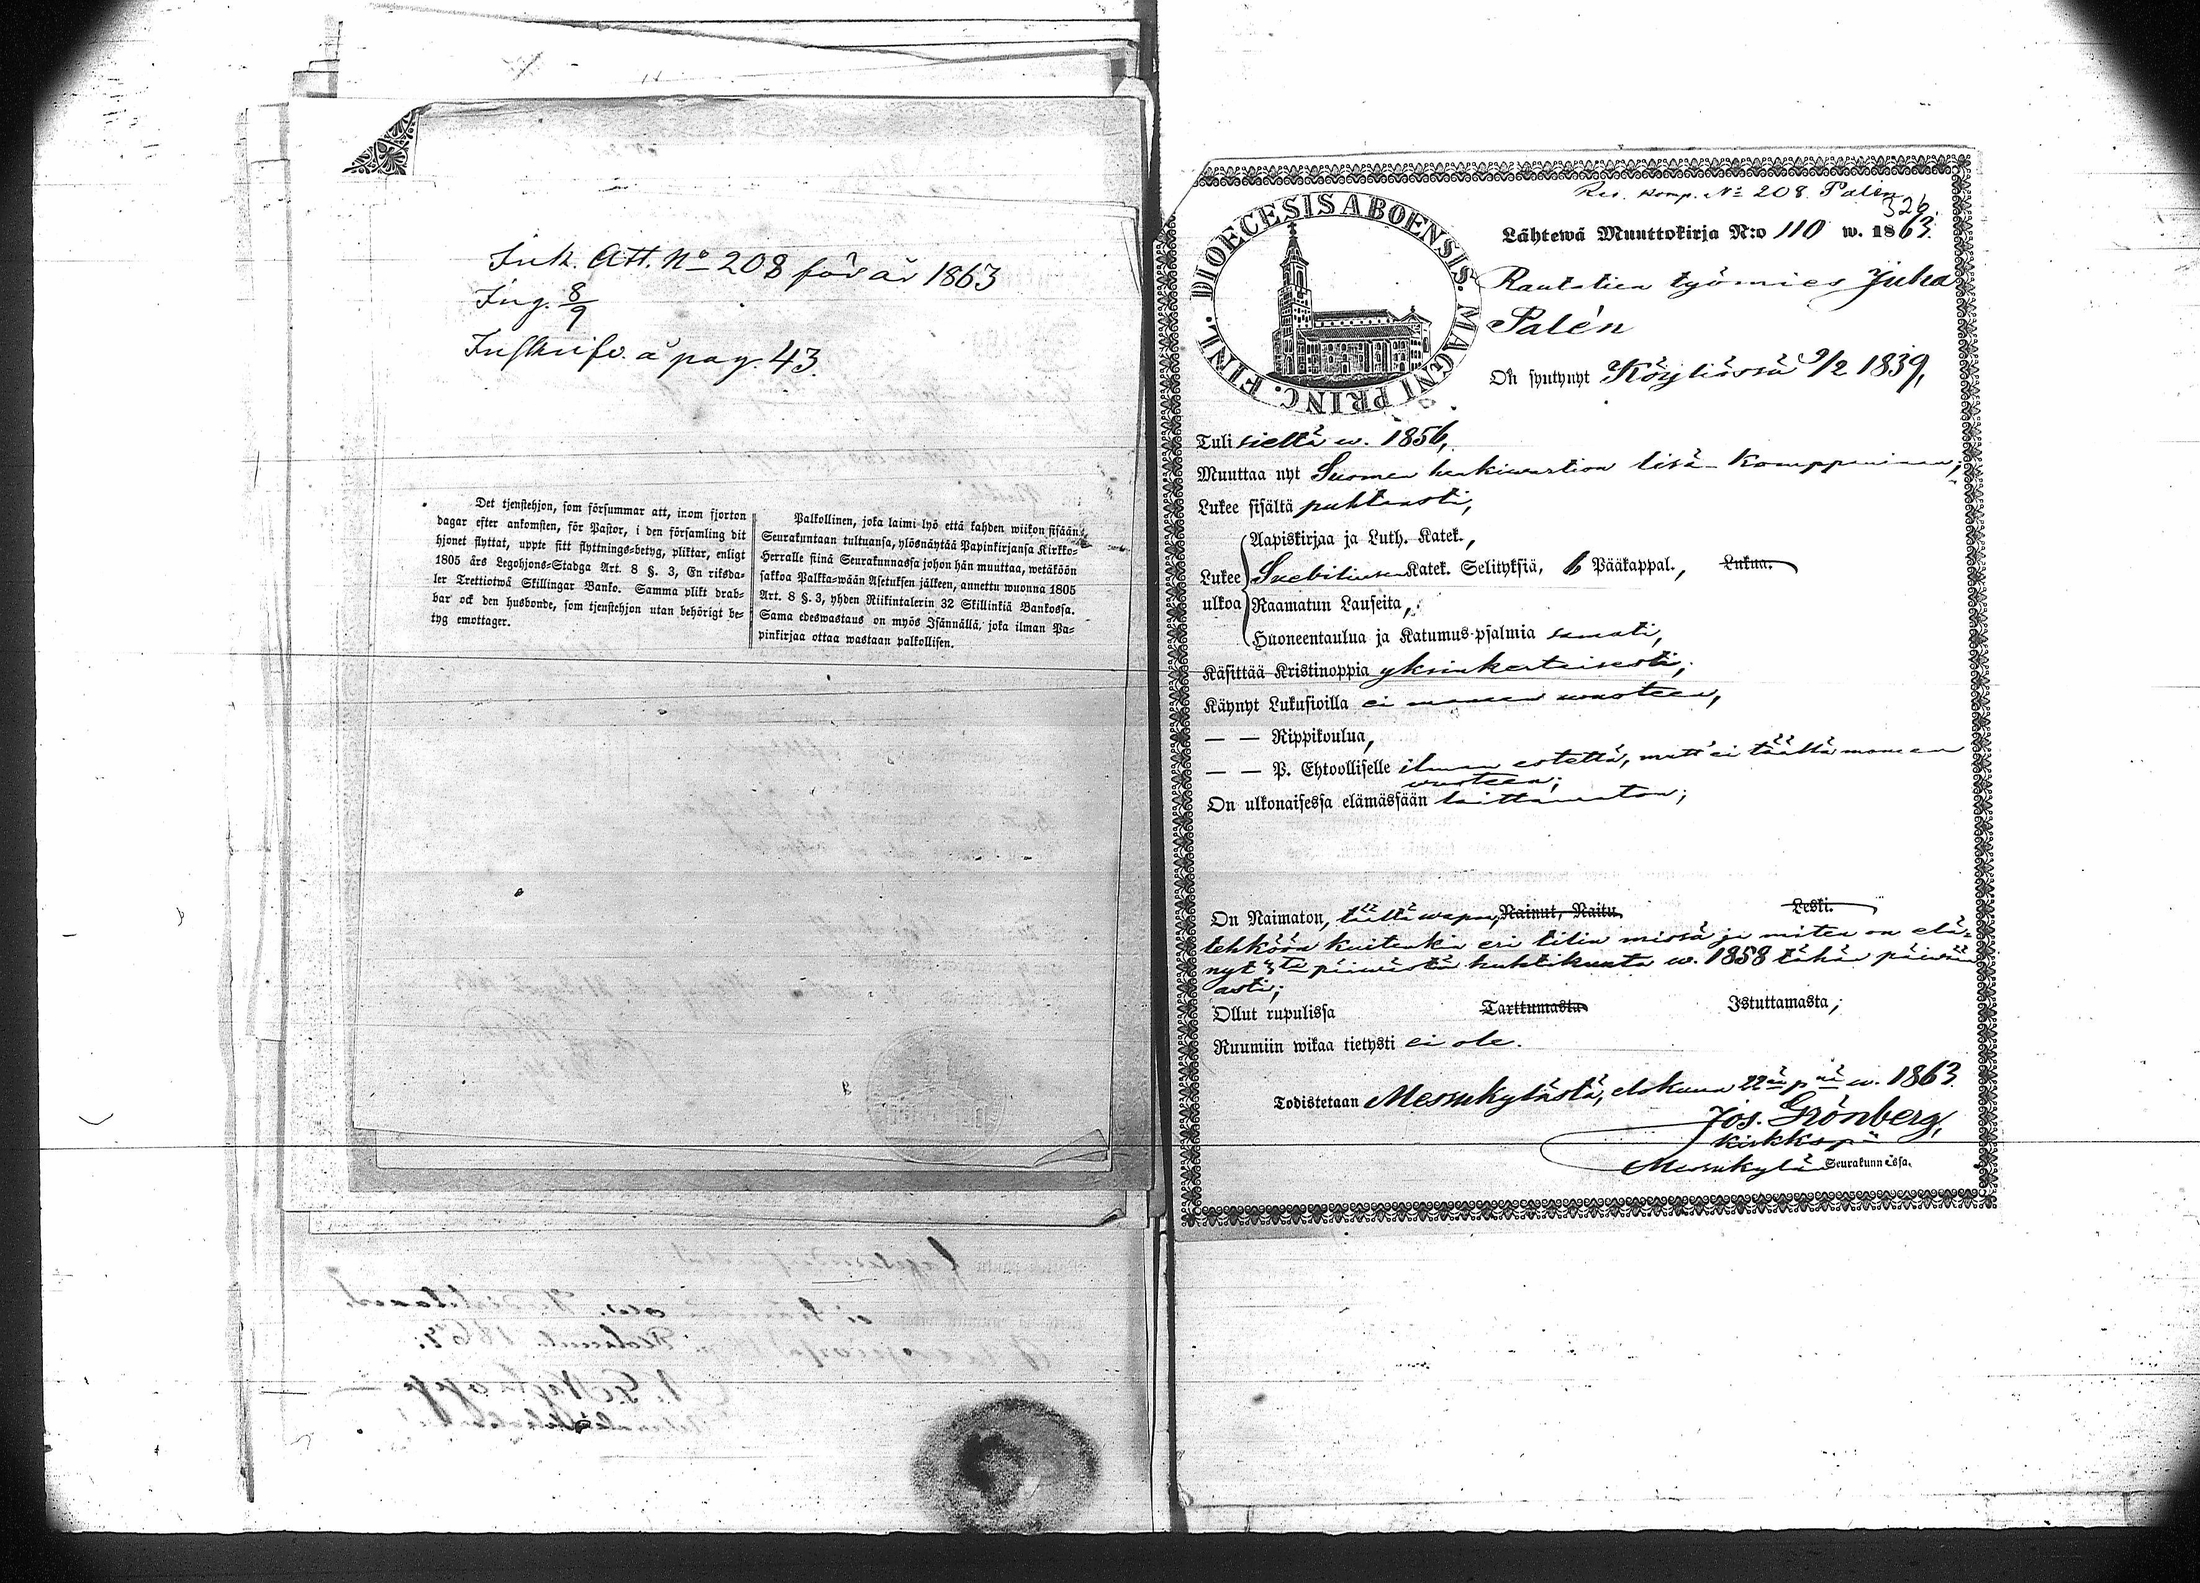 Ink. Att. No 208 för år 1863
Ing. 8/9
Inskrifv. å pag. 43.
Det tjenstehjon, som försummar att, inom fjorton
dagar efter ankomsten, för Pastor, i den församling dit
hjonet flyttat, uppte sitt flyttnings-betyg, pliktar, enligt
1805 års Legohjons-Stadga Art. 8 §. 3, En riksda-
ler Trettiotwå Skillingar Banko. Samma plikt drab-
bar ock den husbonde, som tjenstehjon utan behörigt be-
tyg emottager.
Palkollinen, joka laimi lyö että kahden wiikon sisään
Seurakuntaan tultuansa, ylösnäytää Papinkirjansa Kirkko-
Herralle siinä Seurakunnassa johon hän muuttaa, wetäköön
sakkoa Palkka-wään Asetuksen jälkeen, annettu wuonna 1805
Art. 8 §. 3, yhden Riikintalerin 32 Skillinkiä Bankossa.
Sama edeswastaus on myös Isännällä, joka ilman Pa-
pinkirjaa ottaa wastaan palkollisen.
Res. komp. No 208. Palén
326.
DIOECESIS ABOENSIS. MAGNI PRINC. FINL.
Lähtewä Muuttokirja N:o 110 w. 1863.
Rautatien työmies Juha
Palén
On syntynyt Köyliössä 9/2 1839,
Tuli sieltä w. 1856,
Muuttaa nyt Suomen henkiwartion lisä-Komppaniaan;
Lukee sisältä puhtaasti,
Aapiskirjaa ja Luth. Katek.,
Lukee Suebiliusen Katek. Selityksiä, 6 Pääkappal., Lukua.
ulkoa Raamatun Lauseita,
Huoneentaulua ja Katumus-psalmia samati,
Käsittää Kristinoppia yksinkertaisesti;
Käynyt Lukusioilla ei moneen wuoteen,
— — Rippikoulua,
— — P. Ehtoolliselle ilman estettä, mutt'ei täällä moneen
wuoteen;
On ulkonaisessa elämässään laittamaton;
On Naimaton, täältä wapa, Nainut, Naitu Leski.
tehköön kuitenkin eri tilin missä ja miten on elä-
nyt 3ta päiwästä huhtikuuta w. 1858 tähän päiwään
asti;
Ollut rupulissa Tarttumasta Istuttamasta,
Ruumiin wikaa tietysti ei ole.
Todistetaan Messukylästä, elokuun 22na pnä w. 1863.
Jos. Grönberg,
Messukylän Seurakunnassa.